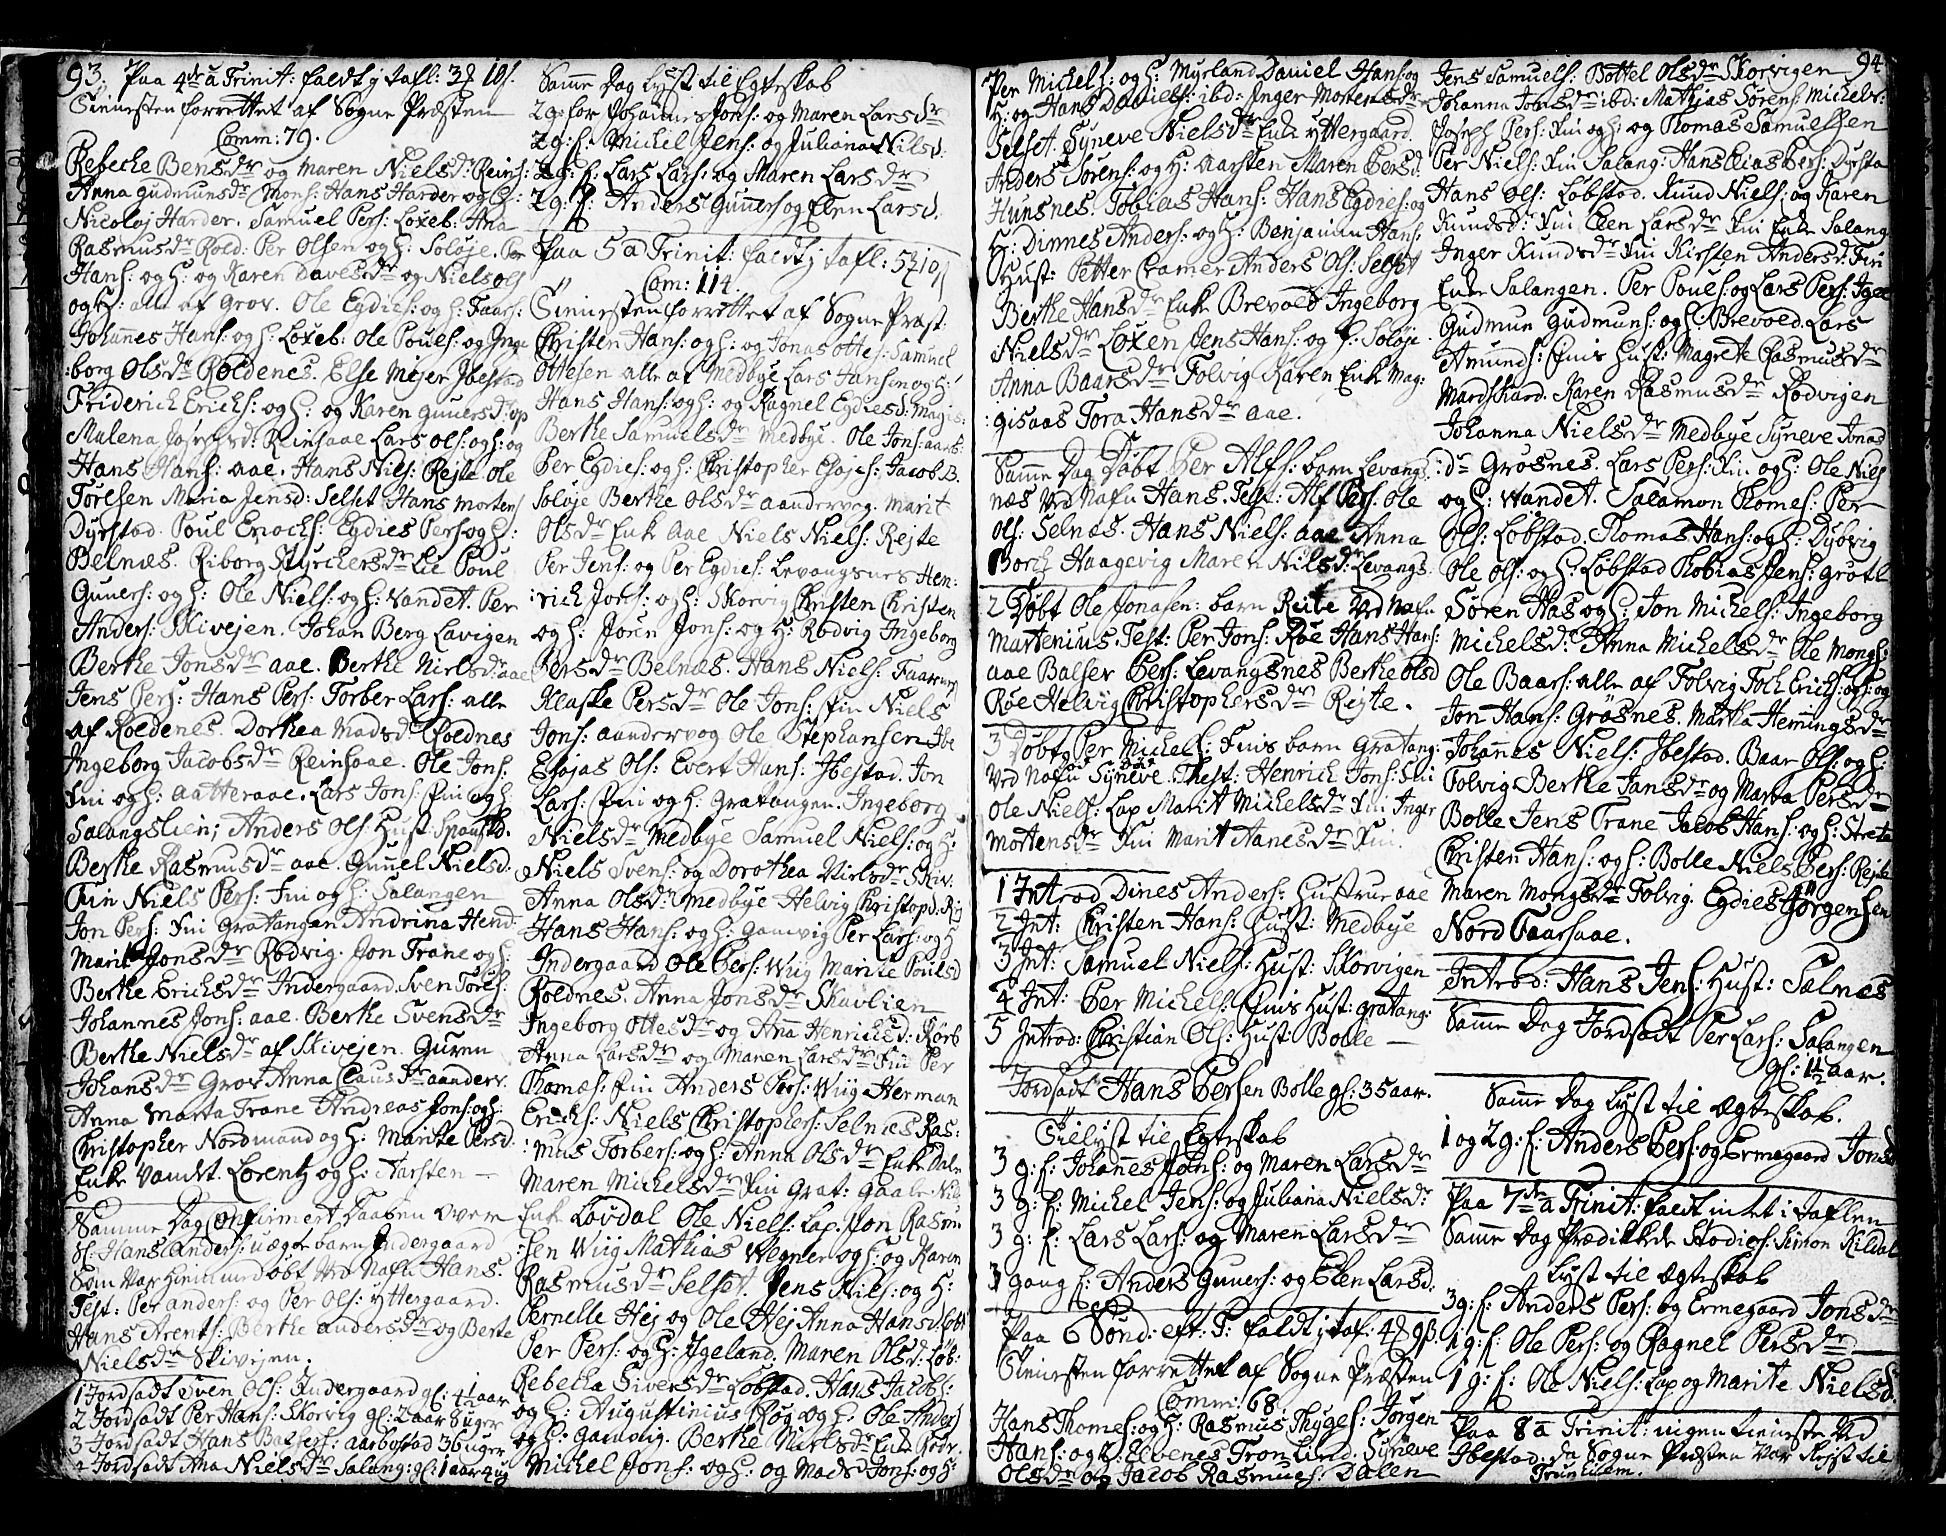 93. Paa 4de a Trinit: faldt j tafl: 3 10
Tienesten forrettet af Sogne Præsten
Comm: 79.
Rebecke Bensdr og Maren Nielsdr Reins:
Anna Gudmunsdr Mons: Hans Harder og H:
Nicolaj Harder. Samuel Pers: Loxeb: Ana
Rasmusdr Rold: Per Olsen og H: Soløje. Per
Hans: og H: og Karen Davesdr og Niels Ols
og H: alle af Grov. Ole Egdies: og H: Faars:
Johannes Hans: og H: Loxeb: Ole Pouels: og Inge
:borg Olsdr Roldenes. Else Mejer Jbestad
Friderich Erichs: og H: og Karen Gunersd: og
Malena Josepsd: Reinsaae Lars Ols: og H: og
Hans Hans: aae. Hans Niels: Rejte Ole
Toresen Maria Jensd: Selset Hans Mortens
Dyrstad. Poul Enochs: Egdies Pers: og H:
Belnæs. Riborg Styrchersdr Lie Poul
Guners: og H: Ole Niels: og H: Vandet. Per
Anders: Skivejen. Johan Berg Lavigen
Berthe Jonsdr aae. Berthe Nielsdr: aae
Jens Pers: Hans Pers: Torber Lars: alle
af Roedenes. Dorthea Madsd: Roldnes
Ingeborg Jacobsdr Reinsaae. Ole Jons:
Fin og H: aatteraae. Lars Jons: Fin og H:
Salangslien; Anders Ols: Hust: Spansb.
Berthe Rasmusdr aae. Gunnel Nielsd:
Fin Niels Pers: Fin og H: Salangen
Jon Pers: Fin Gratangen Andrina Hend:
Marit Jonsdr Rødvig. Jon Trane og H:
Berthe Erichsdr Indergaard. Sven Tores:
Johannes Jons: aae. Berthe Svensdr
Berthe Nielsdr af Skivejen. Guren
Johansdr Grov Anna Clausdr aanderv.
Anna Marta Trane Andreas Jons: og H:
Christopher Nordmand og H: Marite Persd:
Enke Vandt. Lorentz og H: Aarsten —
Samme Dag Confirmert Daaben over
Hans Anders: uægte barn Indergaard
Som Var hiemmedøbt Ved Nafn Hans.
Test: Per Anders: og Per Ols: Yttergaard.
Hans Arents: Berthe Andersdr og Berte
Nielsdr Skivejen.
1 Jordsadt Sven Ols: Indergaard gl: 4½ aar
2 Jordsadt Per Hans: Skorvig gl: 2 aar 8 uger
3 Jordsadt Hans Balsers: aarbostad 36 uger
4 Jordsadt Ana Nielsdr Salang: gl: 1 aar 4 ug
Samme Dag Lyst til Egteskab
2 g: for Johannes Jons: og Maren Larsdr
2 g: f: Michel Jens: og Juliana Nilsd:
2 g: f: Lars Lars: og Maren Larsdr
2 g: f: Anders Guners og Elen Larsd.
Paa 5 a Trinit: faldt j tafl: 5 10
Com: 114.
Tienesten forrettet af Sogne Præst:
Christen Hans: og H: og Jonas Ottes: Samuel
Ottesen alle af Medbye Lars Hansen og H:
Hans Hans: og H: og Ragnel Egdiesd: Magis:
Berthe Samuelsdr Medbye. Ole Jons: aars:
Per Egdies: og H: Christopher Esajes: Jacob B.
Soløje Berthe Olsdr aandervog. Marit
Olsdr Enk aae Niels Niels: Rejte
Per Jens: og Per Egdies: Levangsnes Hen:
:rich Jons: og H: Skorvig Christen Christen
og H: Joen Jons: og H: Rødvig Ingeborg
Persdr Belnæs. Hans Niels: Faarnes
Klaske Persdr Ole Jons: Fin Niels
Jons: aandervog Ole Stephansen Jbe
Esajas Ols: Evert Hans: Jbestad. Jon
Lars: Fin og H: Gratangen. Ingeborg
Nielsdr Medbye Samuel Niels: og H:
Niels Svens: og Dorothea Nielsdr Skiv:
Anna Olsdr Medbye Helvig Christopd: Rij
Hans Hans: og H: Gamvig Per Lars: og H
Indergaard Ole Pers: Wiig Marite Poulsd
Roldnes. Anna Jonsdr Skavlien
Ingeborg Ottesdr og Ana Henrichsd: Rørb
Anna Larsdr og Maren Larsdr Fin Per
Thomæs: Fin Anders Pers: Wiig Herman
Erichs: Niels Christophers: Selnes Ras:
:mus Torbers: og H: Anna Olsdr Enke Dale
Maren Michelsdr Fin Grat: Gaale Nils
Enk Løvdal Ole Niels: Lap. Jon Rasmu
:sen Wiig Mathias Wegner og H: og Karen
Rasmusdr Selset. Jens Niels: og H:
Pernelle Hej og Ole Hej Anna Hansd: Løb
Per Pers: og H: Igeland. Maren Olsd: Løb:
Rebecka Siversdr Løbstad. Hans Jacobs:
og H: Augustinius Røg og H: Ole Anders
og H: Gamvig. Berthe Nielsdr Enk Rødv.
Michel Jons: og H: og Mads Jons: og H:
Per Michels: og H: Myrland Daniel Hans: og
H: og Hans Daniels: ibd: Inger Mortensdr
Selset. Syneve Nielsdr Enk Yttergaard.
Anders Sørens: og H: Aarsten Maren Persd:
Hunsnes. Tobias Hans: Hans Egdies: og
H: Dinnes Anders: og H: Benjamin Hans:
Hust: Petter Cramer Anders Ols: Selset
Berthe Hansdr Enke Brevold Ingeborg
Nielsdr Loxen Jens Hans: og H: Soløje.
Anna Baarsdr Folvig Karen Enke Mag:
:gisaas Tora Hansdr aae.
Samme Dag Døbt Per Alfs: barn Levangs
næs Ved Nafn Hans. Test: Alf Pers: Ole
Ols: Selnæs. Hans Niels: aae Anna
Borch Haagevig Maren Nilsd: Levangs.
2 Døbt Ole Jonasen: barn Reite Ved Nafn
Martenius. Test: Per Jons: Røe Hans Hans:
aae Balser Pers: Levangsnes Berthe Olsd
Røe Helvig Christophersdr Rejte.
3 Døbt Per Michels: Fins barn Gratang:
Ved Nafn Syneve. Thest: Henrich Jons: Fin
Ole Niels: Lap Marit Michelsdr Fin Inger
Mortensdr Fin Marit Hanesdr Fin.
1 Introd Dines Anders: Hustrue aae
2 Int: Christen Hans: Hust: Medbye
3 Int: Samuel Niels: Hust: Skorvigen
4 Int: Per Michels: Fins Hust: Gratang:
5 Introd: Christian Ols: Hust Bolle —
Jordsadt Hans Persen Bolle gl: 35 aar.
Tillyst til Egteskab
3 g: f: Johannes Jons: og Maren Larsdr
3 g: f: Michel Jens: og Juliana Nielsdr:
3 g: f: Lars Lars: og Maren Larsdr
3 gang f: Anders Guners: og Elen Larsd:
Paa 6 Sønd: eft: T: faldt j taf: 4 9 β.
Tienesten forrettet af Sogne Præsten
Comm: 68.
Hans Thomes: og H: Rasmus Thyges: Jørgen
Hans: og H: Elvenes Tron Lind: Syneve
Olsdr og Jacob Rasmus: Dalen
94
Jens Samuels: Bottel Olsdr Skorvigen
Johanna Jonsdr ibd: Mathias Sørens: Michels:
Joseph Pers: Fin og H: og Thomas Samuelsen
Per Niels: Fin Salang: Hans Elias Pers: Dyrsta
Hans Ols: Løbstad. Knud Niels: og Karen
Knudsd: Fin Elen Larsdr Fin Enke Salang
Inger Knudsdr Fin Kirsten Andersd: Fin
Enke Salangen. Per Pouels: og Lars Pers: Igel
Gudmun Gudmuns: og H: Brevold. Lars
Amunds: Fins Hust: Magrete Rasmusdr
Mardskard. Karen Rasmusdr Rødvigen
Johanna Nielsdr Medbye Syneve Jonas
:dr Grøsnes. Lars Pers: Fin og H: Ole Niels
og H: Wandet. Salamon Thomes: Per
Ols: Løbstad. Thomas Hans: og H: Dyevig
Ole Ols: og H: Løbstad Thobias Jens: Grøtl
Søren Has og H: Jon Michels: Ingeborg
Michelsd: Anna Michelsdr Ole Mongs:
Ole Baars: alle af Folvig Toch Erichs: og H: og
Jon Hans: Grøsnes. Martha Hemingsdr
Johanes Niels: Jbestad. Baar Ols: og H:
Folvig Berthe Jansdr og Marta Persdr
Bolle Jens Trane Jacob Hans: og H: Streta
Christen Hans: og H: Bolle Niels Pers: Rejte
Maren Mongsdr Folvig. Egdies Jørgensen
Nord Faarsaae.
Introd: Hans Jens: Hust: Salnæs
Samme Dag Jordsadt Per Lars: Salangen
gl: 1½ aar.
Samme Dag Lyst til Ægteskab.
1 og 2 g: f: Anders Pers: og Ermegaard Jonsd
Paa 7de a Trinit: faldt intet i taflen
Samme Dag Prædikkede Studios: Simon Kildal
Lyst til Ægteskab
3 g: f: Anders Pers: og Ermegaard Jonsdr
1 g: f: Ole Pers: og Ragnel Persdr —
1 g: f: Ole Niels: Lap og Marite Nielsd.
Paa 8 a Trinit: ingen tieneste Ved
Jbestad: da Sogne Præsten Var Rejst til
Trundhiem.